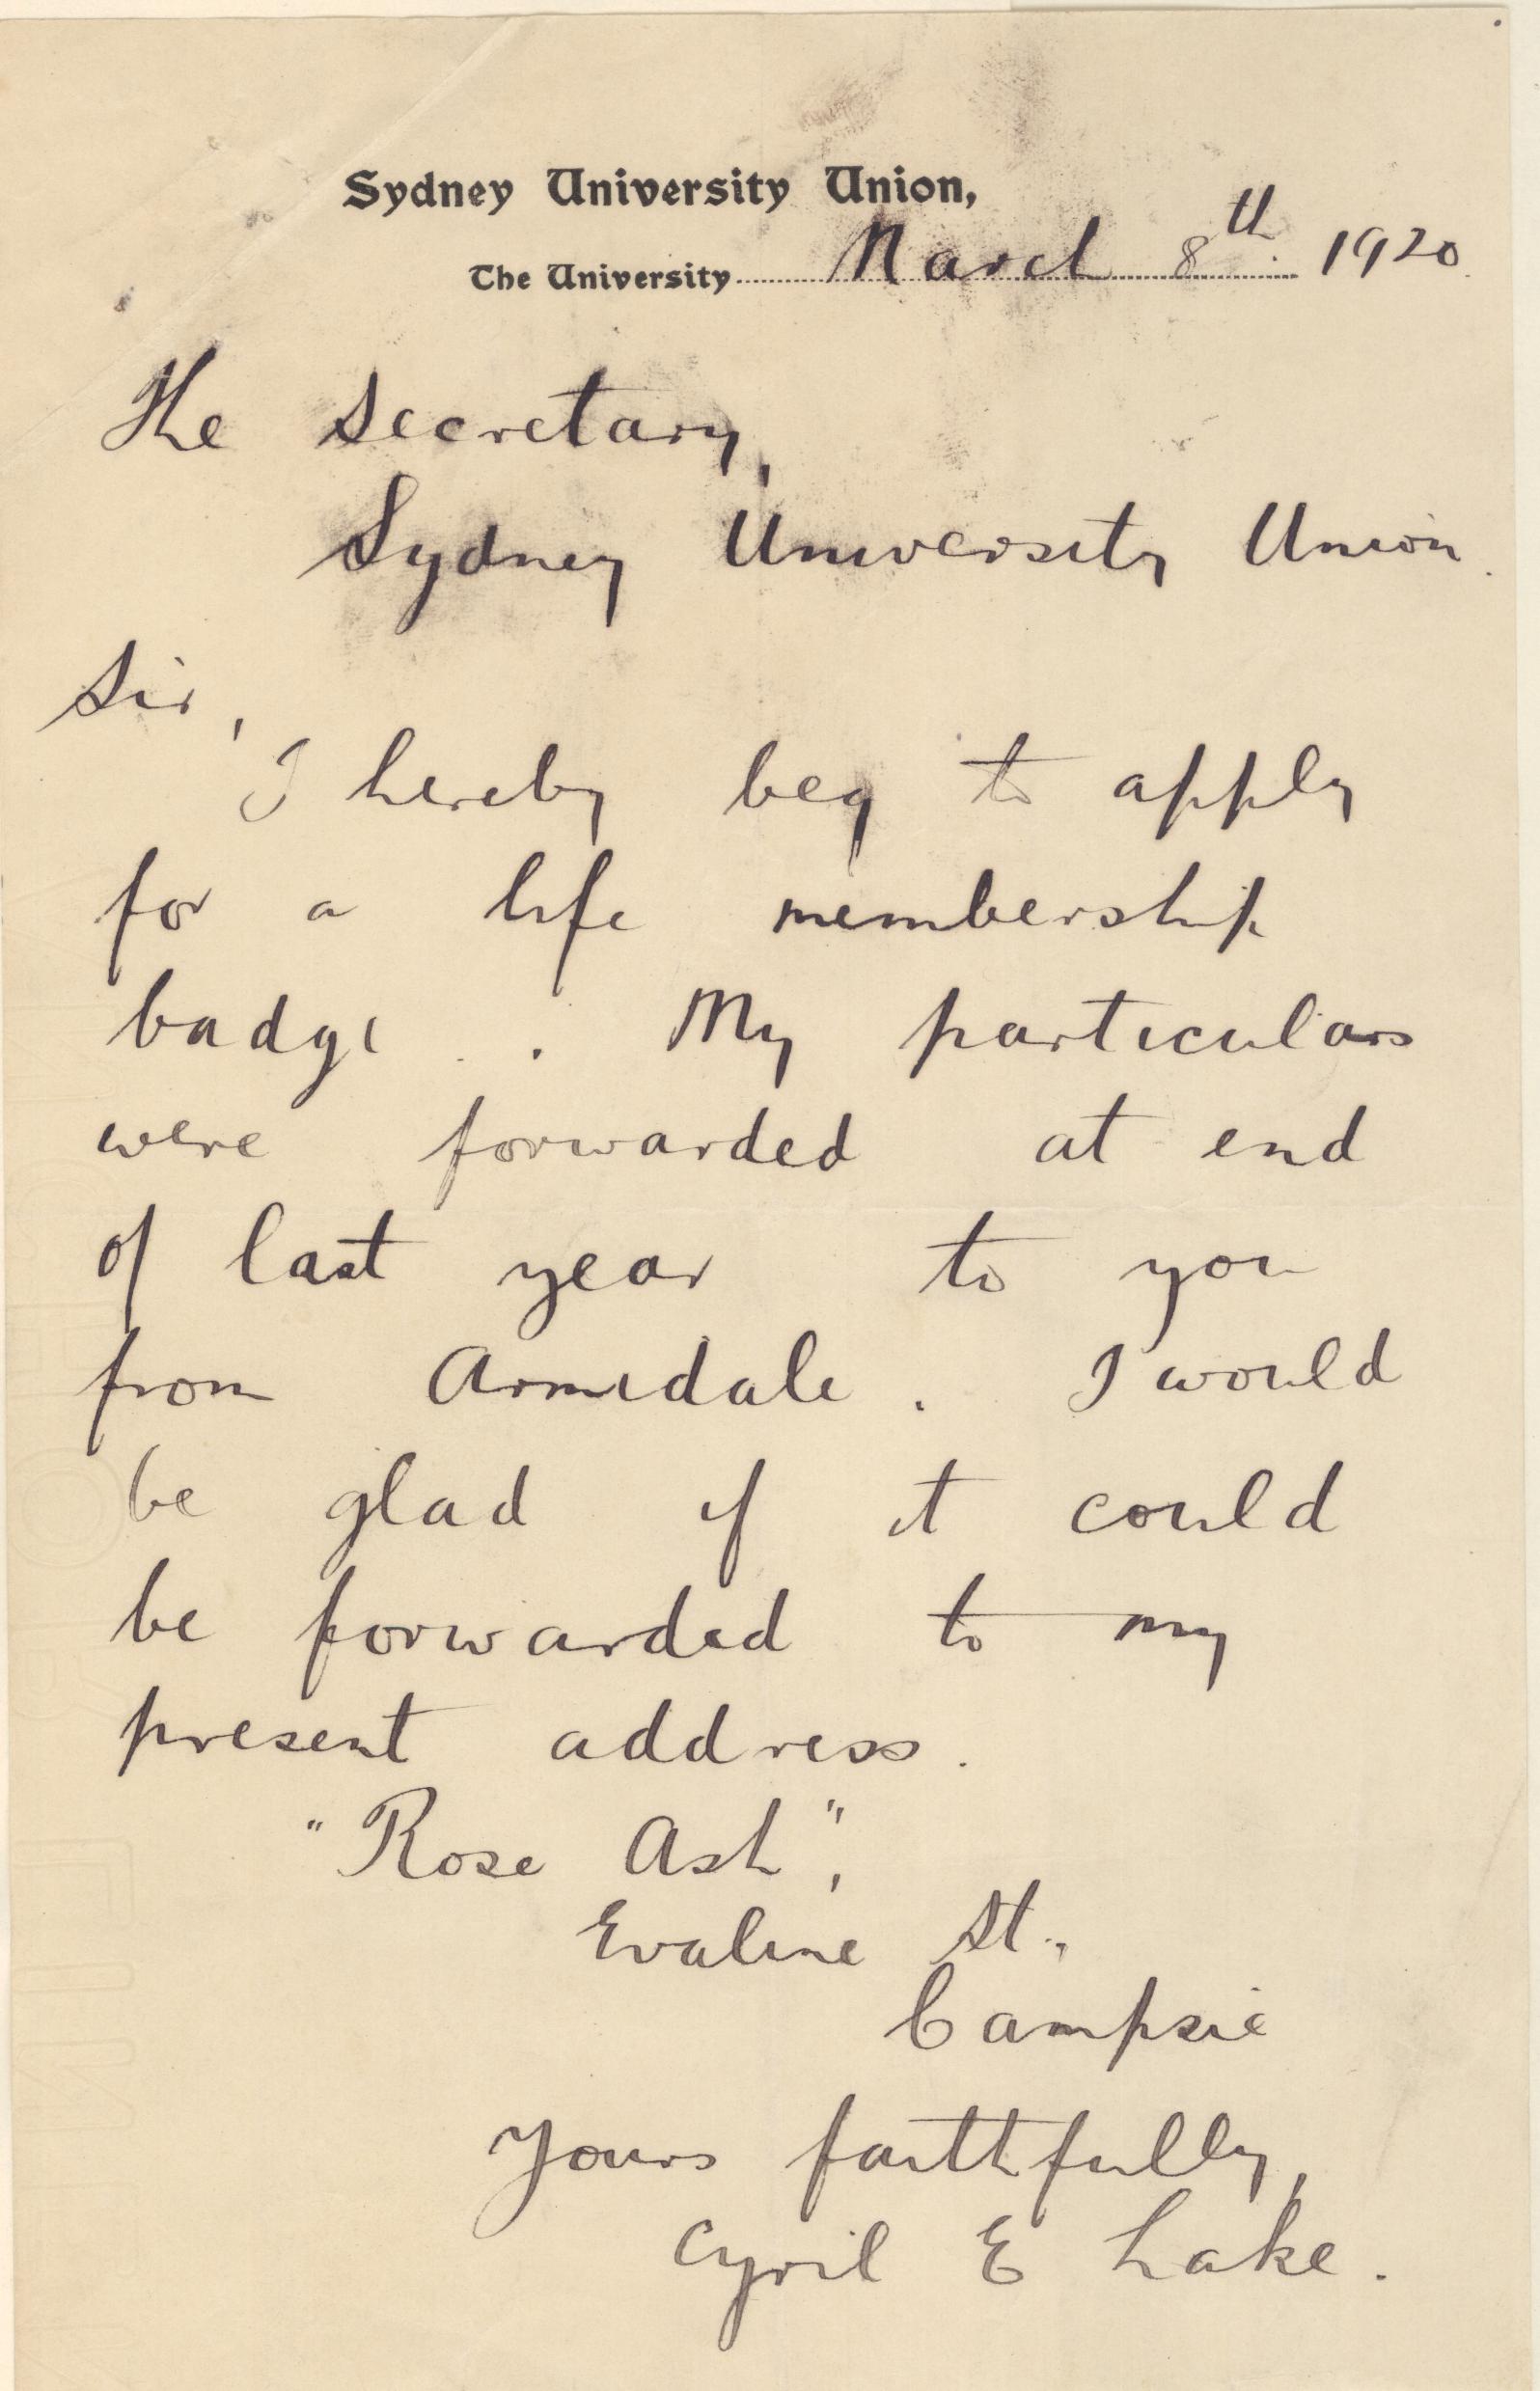 Sydney University Union,
The University March 8th. 1920.
The Secretary,
Sydney University Union.
Sir,
I hereby beg to apply
for a life membership
badge . . My particulars
were forwarded at end
of last year to you
from Armidale. I would
be glad if it could
be forwarded to my
present address.
"Rose Ash",
Evaline St.,
Campsie
Yours faithfully,
Cyril E Lake.